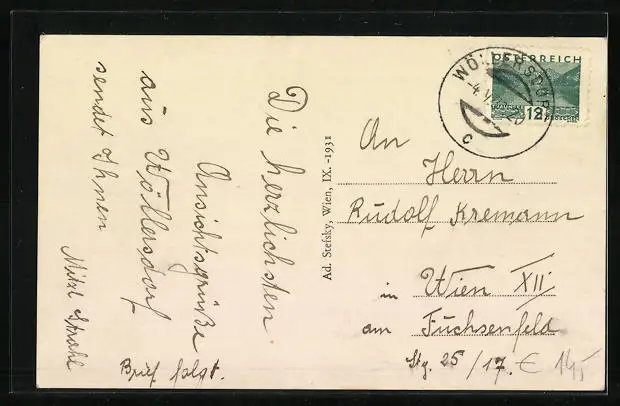 Die herzlichsten
Ansichtsgrüße
aus Wöllersdorf
sendet Ihnen
Mitzl Strahl
Brief folgt.
Ad. Stefsky, Wien, IX. -1931
ÖSTERREICH
12
GROSCHEN
WÖLLERSDORF
c
An
Herrn
Rudolf Kremann
in Wien XII
am Fuchsenfeld
Stg. 25/17.
€ 14,-